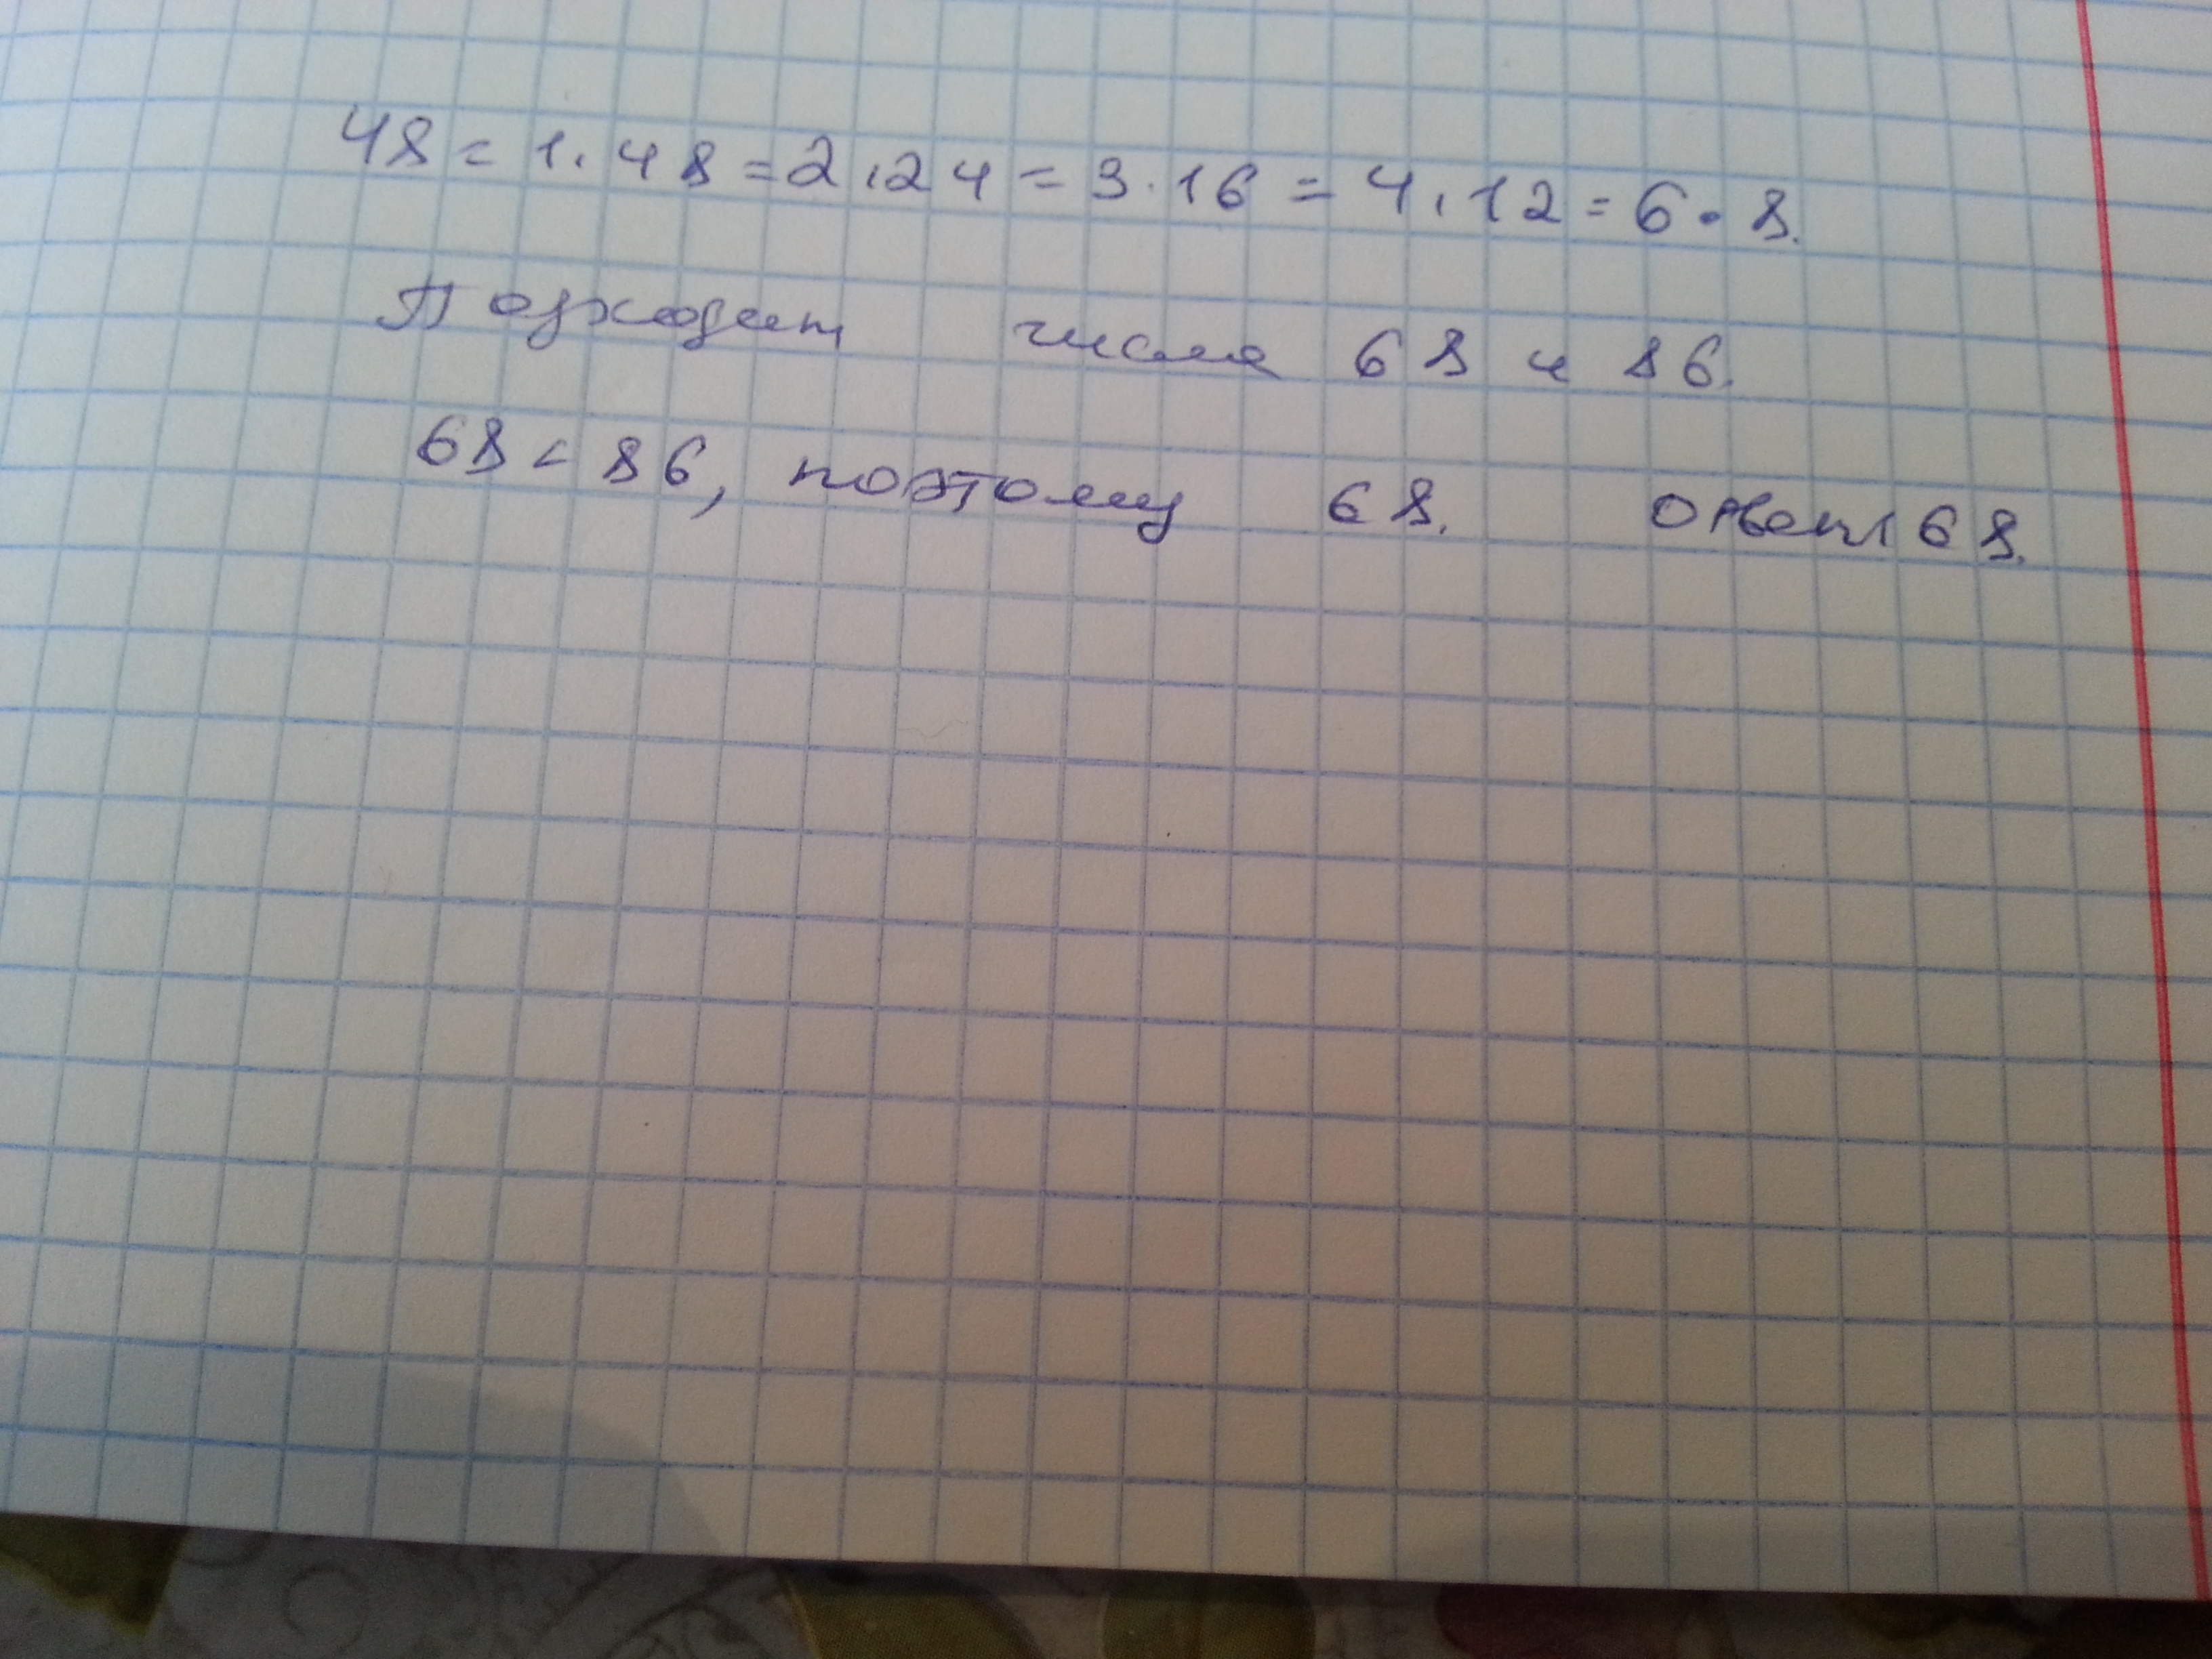 48 = 1 · 48 = 2 · 24 = 3 · 16 = 4 · 12 = 6 · 8.
Подходит числа 68 и 86.
68 < 86, поэтому 68. Ответ 68.